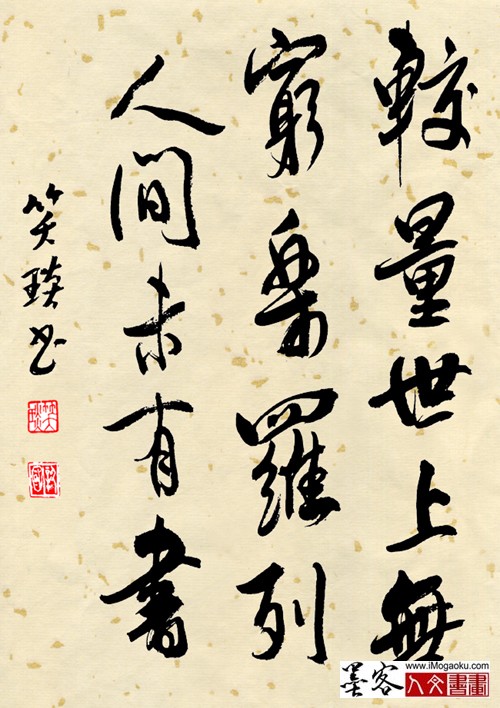 較量世上無
窮樂羅列
人間未有書
笑琰书
www.iMogaoku.com
墨客
人文書畫